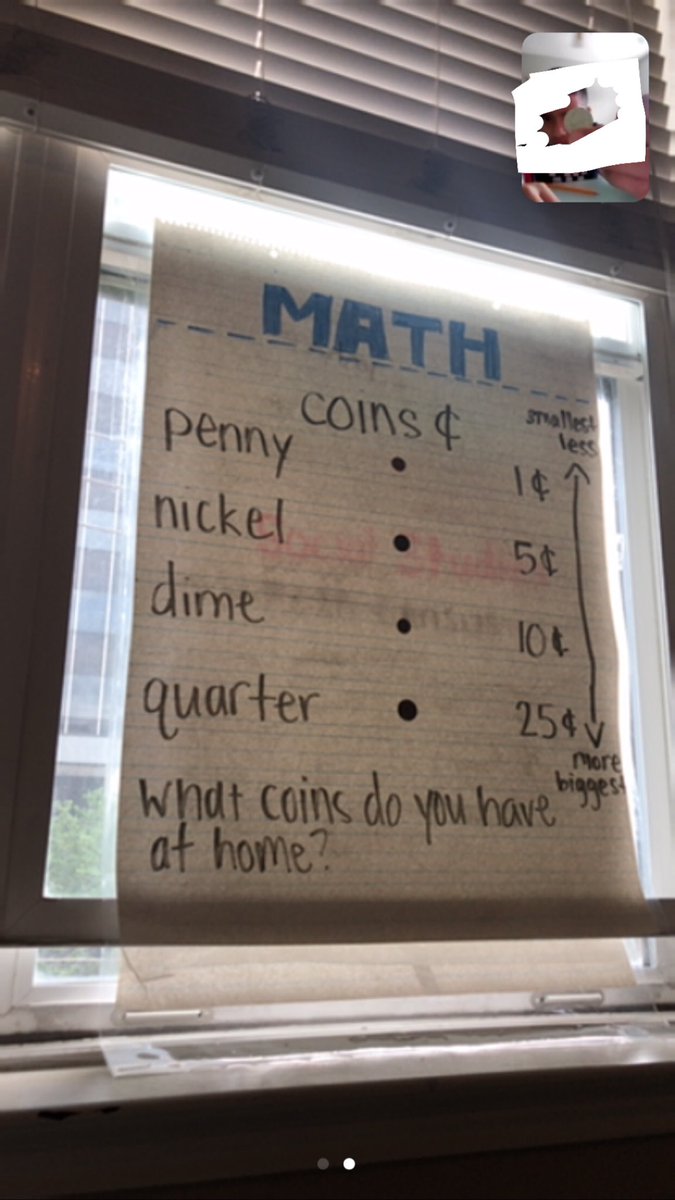 MATH
coins ¢
smallest
less
penny • 1¢
nickel • 5¢
dime • 10¢
quarter • 25¢
more
biggest
What coins do you have
at home?